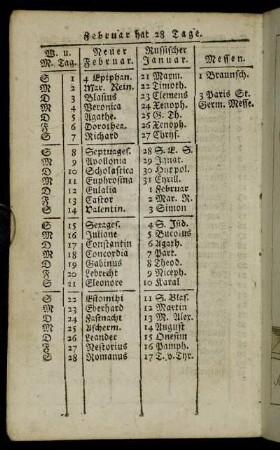 Februar hat 28 Tage.
W. u. Neuer Russischer
M. Tag. Februar. Januar. Messen.
S 1 4 Epiphan. 21 Maxm. 1 Braunsch.
M 2 Mar. Rein. 22 Timoth.
D 3 Blasius 23 Clemens 3 Paris St.
M 4 Veronica 24 Xenoph. Germ. Messe.
D 5 Agathe. 25 G. Th.
F 6 Dorothea. 26 Xenoph.
S 7 Richard 27 Chrys.
S 8 Septuages. 28 S. E. S.
M 9 Apollonia 29 Ignat.
D 10 Scholastica 30 Hyppol.
M 11 Euphrosina 31 Cyrill.
D 12 Eulalia 1 Februar
F 13 Castor 2 Mar. R.
S 14 Valentin. 3 Simon
S 15 Sexages. 4 S. Isid.
M 16 Juliane 5 Bucolus
D 17 Constantin 6 Agath.
M 18 Concordia 7 Part.
D 19 Gabinus 8 Theod.
F 20 Lebrecht 9 Niceph.
S 21 Eleonore 10 Karal
S 22 Estomihi 11 S. Blas.
M 23 Eberhard 12 Martin
D 24 Fastnacht 13 M. Alex.
M 25 Ascherm. 14 August
D 26 Leander 15 Onesim
F 27 Nestorius 16 Pamph.
S 28 Romanus 17 T. v. Tyr.